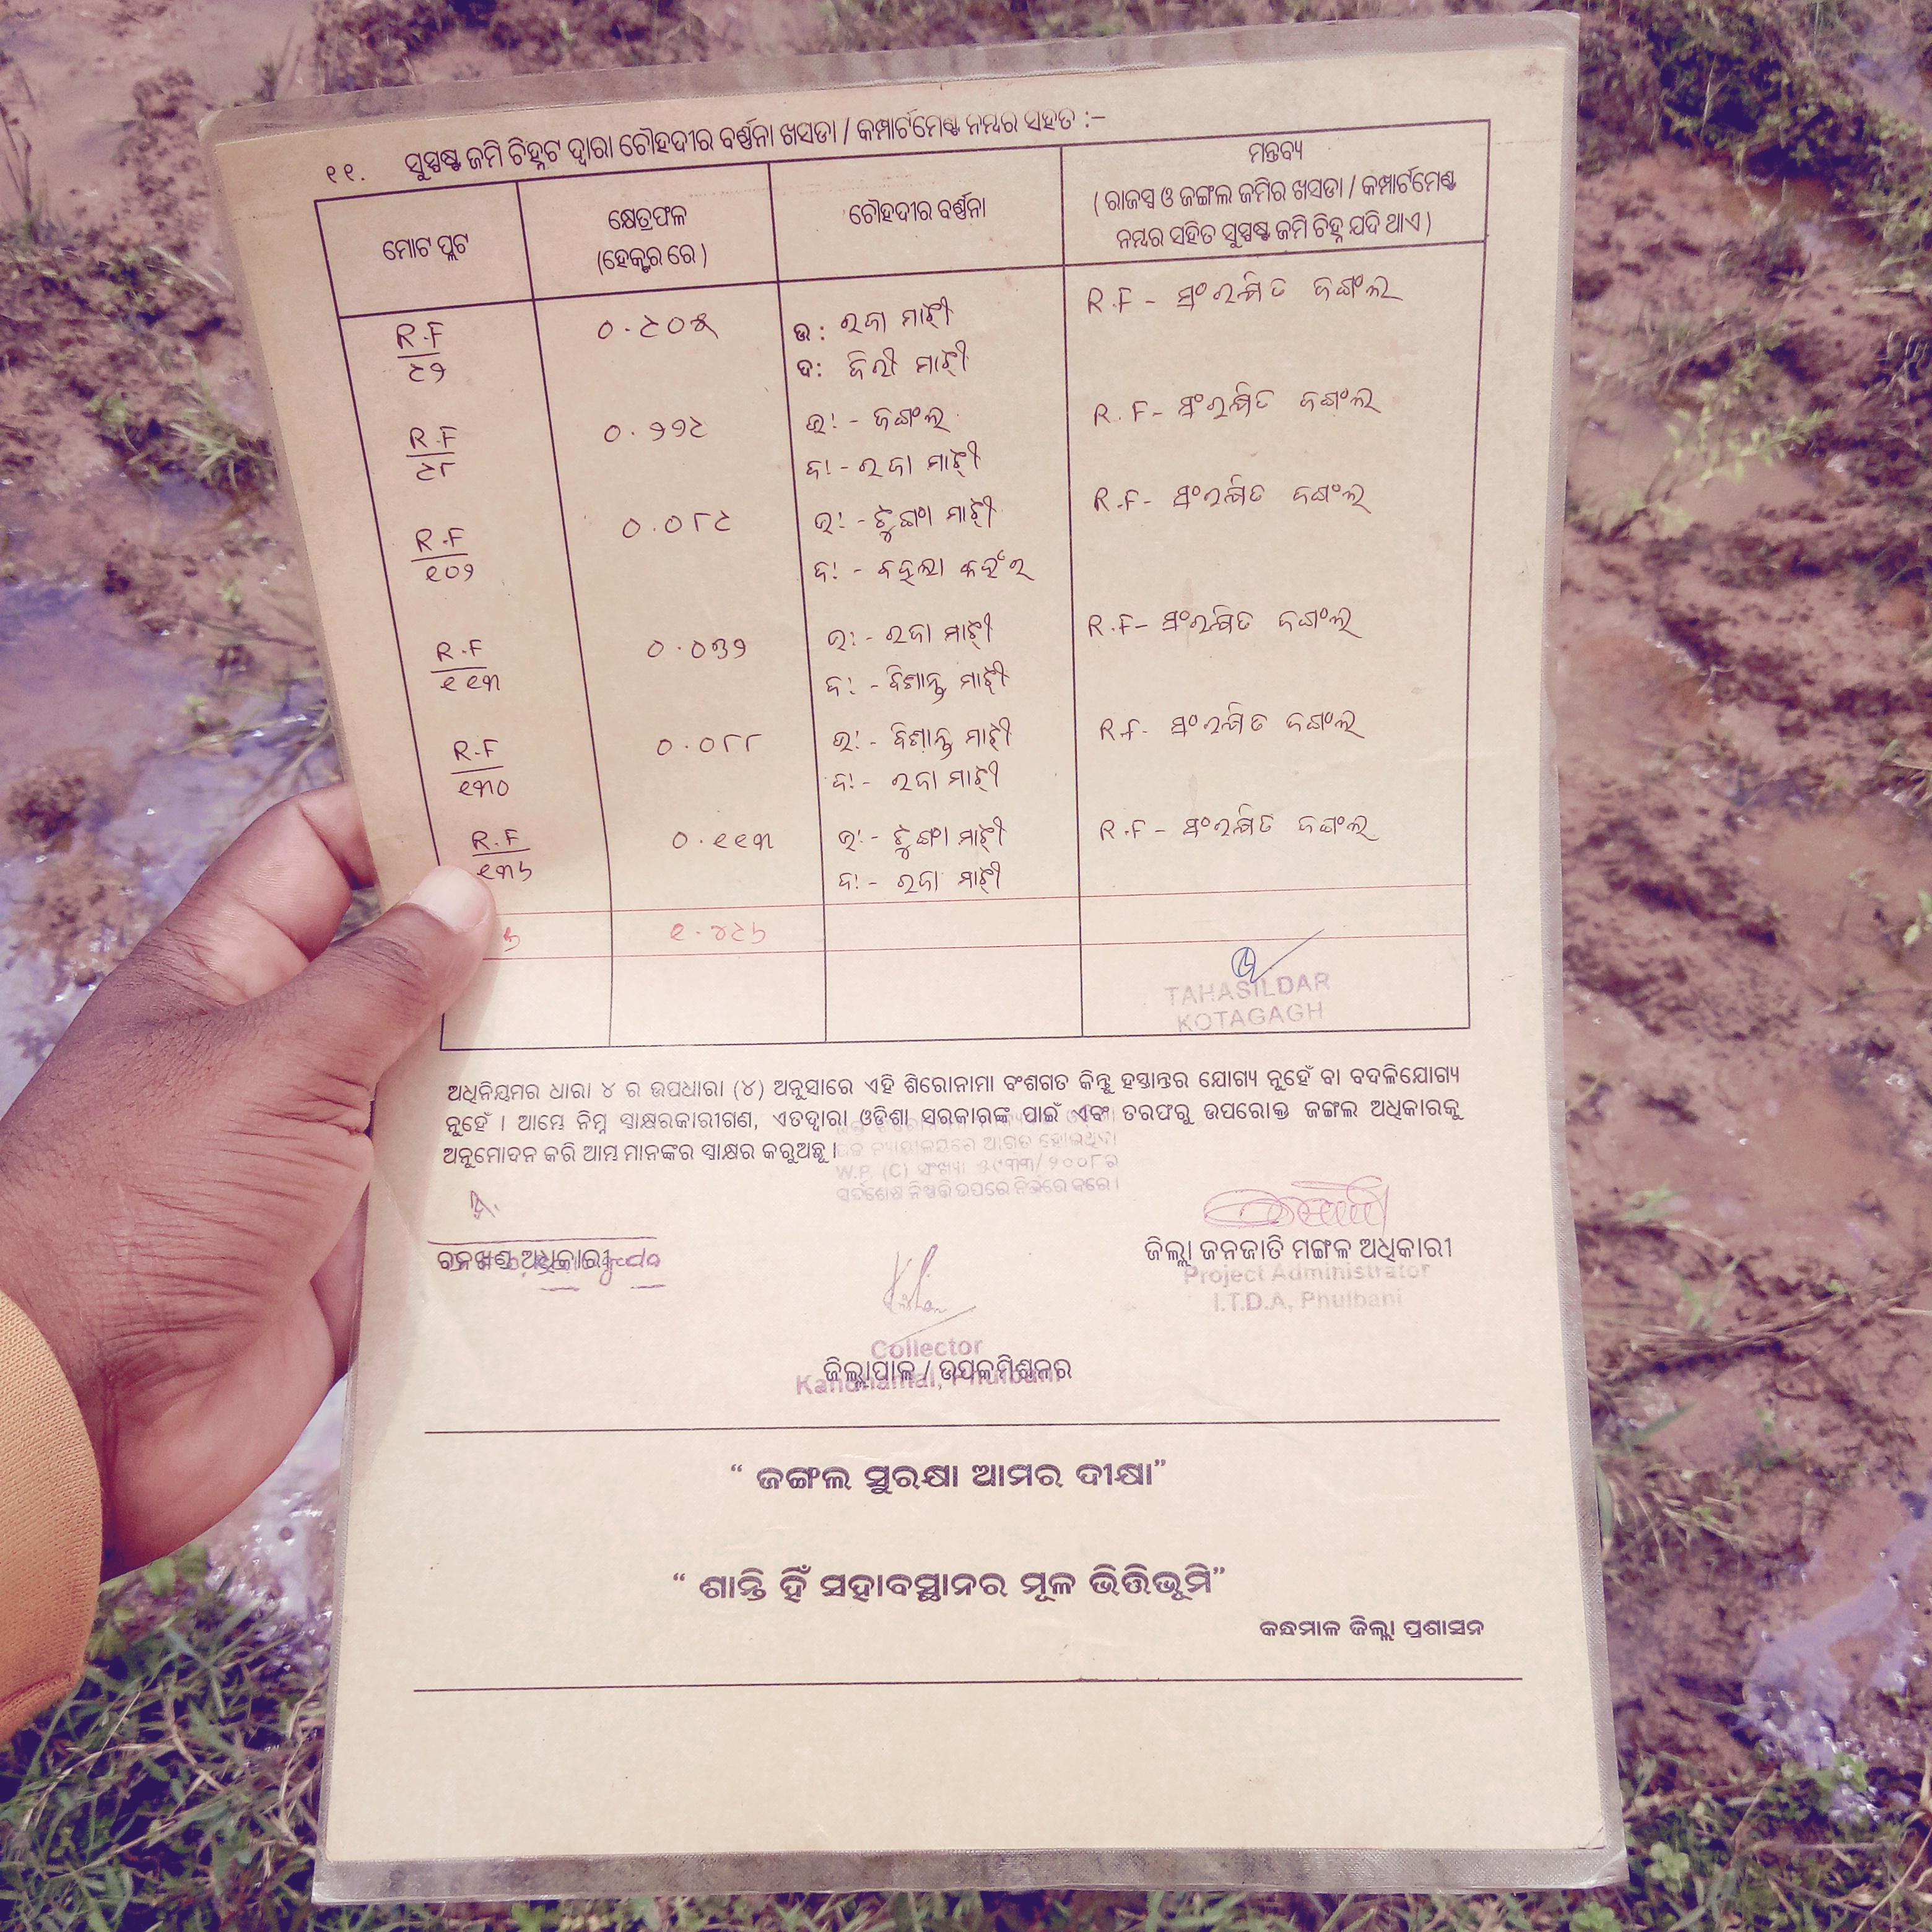 ୧୧. ସୁସ୍ପଷ୍ଟ ଜମି ଚିହ୍ନଟ ଦ୍ୱାରା ଚୌହଦୀର ବର୍ଣ୍ଣନା ଖସଡା / କମ୍ପାର୍ଟମେଣ୍ଟ ନମ୍ବର ସହତ :–
ମୋଟ ପ୍ଲଟ
କ୍ଷେତ୍ରଫଳ
(ହେକ୍ଟର ରେ )
ଚୌହଦୀର ବର୍ଣ୍ଣନା
ମନ୍ତବ୍ୟ
( ରାଜସ୍ୱ ଓ ଜଙ୍ଗଲ ଜମିର ଖସଡା / କମ୍ପାର୍ଟମେଣ୍ଟ
ନମ୍ବର ସହିତ ସୁସ୍ପଷ୍ଟ ଜମି ଚିହ୍ନ ଯଦି ଥାଏ )
R.F ୦.୯୦୫ ଉ: ରଜା ମାଝୀ R.F - ସଂରକ୍ଷିତ ଜଙ୍ଗଲ
୯୨ ଦ: ଜିଲୀ ମାଝୀ
R.F ୦.୨୨୯ ଉ: - ଜଙ୍ଗଲ R.F - ସଂରକ୍ଷିତ ଜଙ୍ଗଲ
୯୮ ଦ: - ରଜା ମାଝୀ
R.F ୦.୦୮୯ ଉ: - ଟୁଙ୍ଗା ମାଝୀ R.F - ସଂରକ୍ଷିତ ଜଙ୍ଗଲ
୧୦୨ ଦ: -
R.F ୦.୦୩୨ ଉ: - ରଜା ମାଝୀ R.F - ସଂରକ୍ଷିତ ଜଙ୍ଗଲ
୧୧୩ ଦ: - ବିଶାନ୍ତ ମାଝୀ
R.F ୦.୦୮୮ ଉ: - ବିଶାନ୍ତ ମାଝୀ R.F - ସଂରକ୍ଷିତ ଜଙ୍ଗଲ
୧୩୦ ଦ: - ରଜା ମାଝୀ
R.F ୦.୧୧୩ ଉ: - ଟୁଙ୍ଗା ମାଝୀ R.F - ସଂରକ୍ଷିତ ଜଙ୍ଗଲ
୧୩୬ ଦ: - ରଜା ମାଝୀ
୬ ୧.୪୯୬
TAHASILDAR
KOTAGAGH
ଅଧିନିୟମର ଧାରା ୪ ର ଉପଧାରା (୪) ଅନୁସାରେ ଏହି ଶିରୋନାମା ବଂଶଗତ କିନ୍ତୁ ହସ୍ତାନ୍ତର ଯୋଗ୍ୟ ନୁହେଁ ବା ବଦଳିଯୋଗ୍ୟ
ନୁହେଁ । ଆମ୍ଭେ ନିମ୍ନ ସ୍ୱାକ୍ଷରକାରୀଗଣ, ଏତଦ୍ୱାରା ଓଡ଼ିଶା ସରକାରଙ୍କ ପାଇଁ ଏବଂ ତରଫରୁ ଉପରୋକ୍ତ ଜଙ୍ଗଲ ଅଧିକାରକୁ
ଅନୁମୋଦନ କରି ଆମ୍ଭ ମାନଙ୍କର ସ୍ୱାକ୍ଷର କରୁଅଛୁ ।
ନ୍ୟାୟାଳୟରେ ଆଗତ ହୋଇଥିବା
W.P. (C) ସଂଖ୍ୟା ୫୯୩୩/୨୦୦୮ର
ସର୍ବଶେଷ ନିଷ୍ପତ୍ତି ଉପରେ ନିର୍ଭର କରେ ।
ବନଖଣ୍ଡ ଅଧିକାରୀ
ଜିଲ୍ଲା ଜନଜାତି ମଙ୍ଗଳ ଅଧିକାରୀ
Project Administrator
I.T.D.A, Phulbani
Collector
ଜିଲ୍ଲାପାଳ / ଉପକମିଶ୍ନର
Kandhamal, Phulbani
“ ଜଙ୍ଗଲ ସୁରକ୍ଷା ଆମର ଦୀକ୍ଷା”
“ ଶାନ୍ତି ହିଁ ସହାବସ୍ଥାନର ମୂଳ ଭିତ୍ତିଭୂମି”
କନ୍ଧମାଳ ଜିଲ୍ଲା ପ୍ରଶାସନ